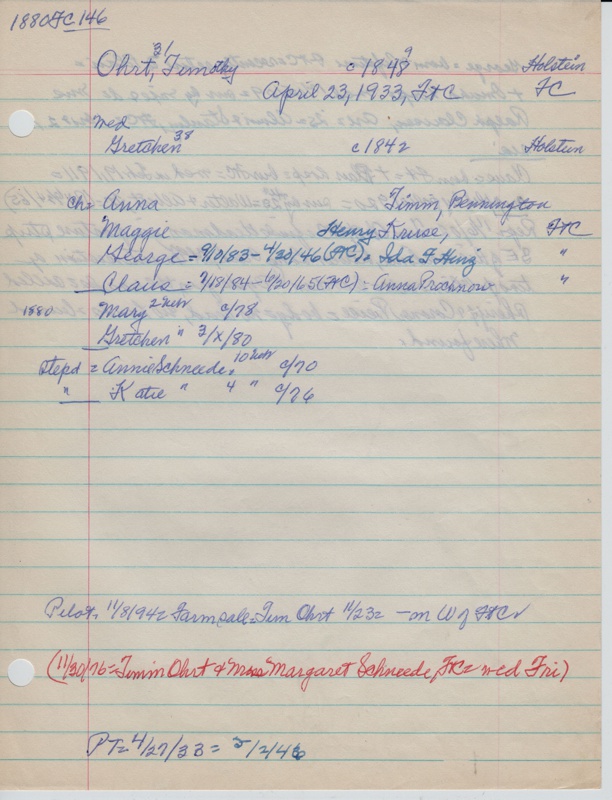 1880 FC 146
Ohrt, Timothy 31 c 1848 9 Holstein
April 23, 1933, FtC FC
med
Gretchen 38 c 1842 Holstein
ch = Anna Timm, Pennington
" Maggie Henry Kruse, FtC
George = 9/10/83 - 4/20/46 (FtC) = Ida F Hinz "
Claus = 7/18/84 - 6/30/65 (FtC) = Anna Prochnow "
1880 Mary 2 Neb c/78
Gretchen " 3/x/80
stepd = Annie Schneede, 10 Neb c/70
" Katie " 4 " c/76
Pilot, 11/8/94 = Farm sale = Tim Ohrt 11/23 = - m W of FtC
(11/30/76 = Timm Ohrt & Miss Margaret Schneede, FtC = med Fri)
PT = 4/27/33 = 5/2/46